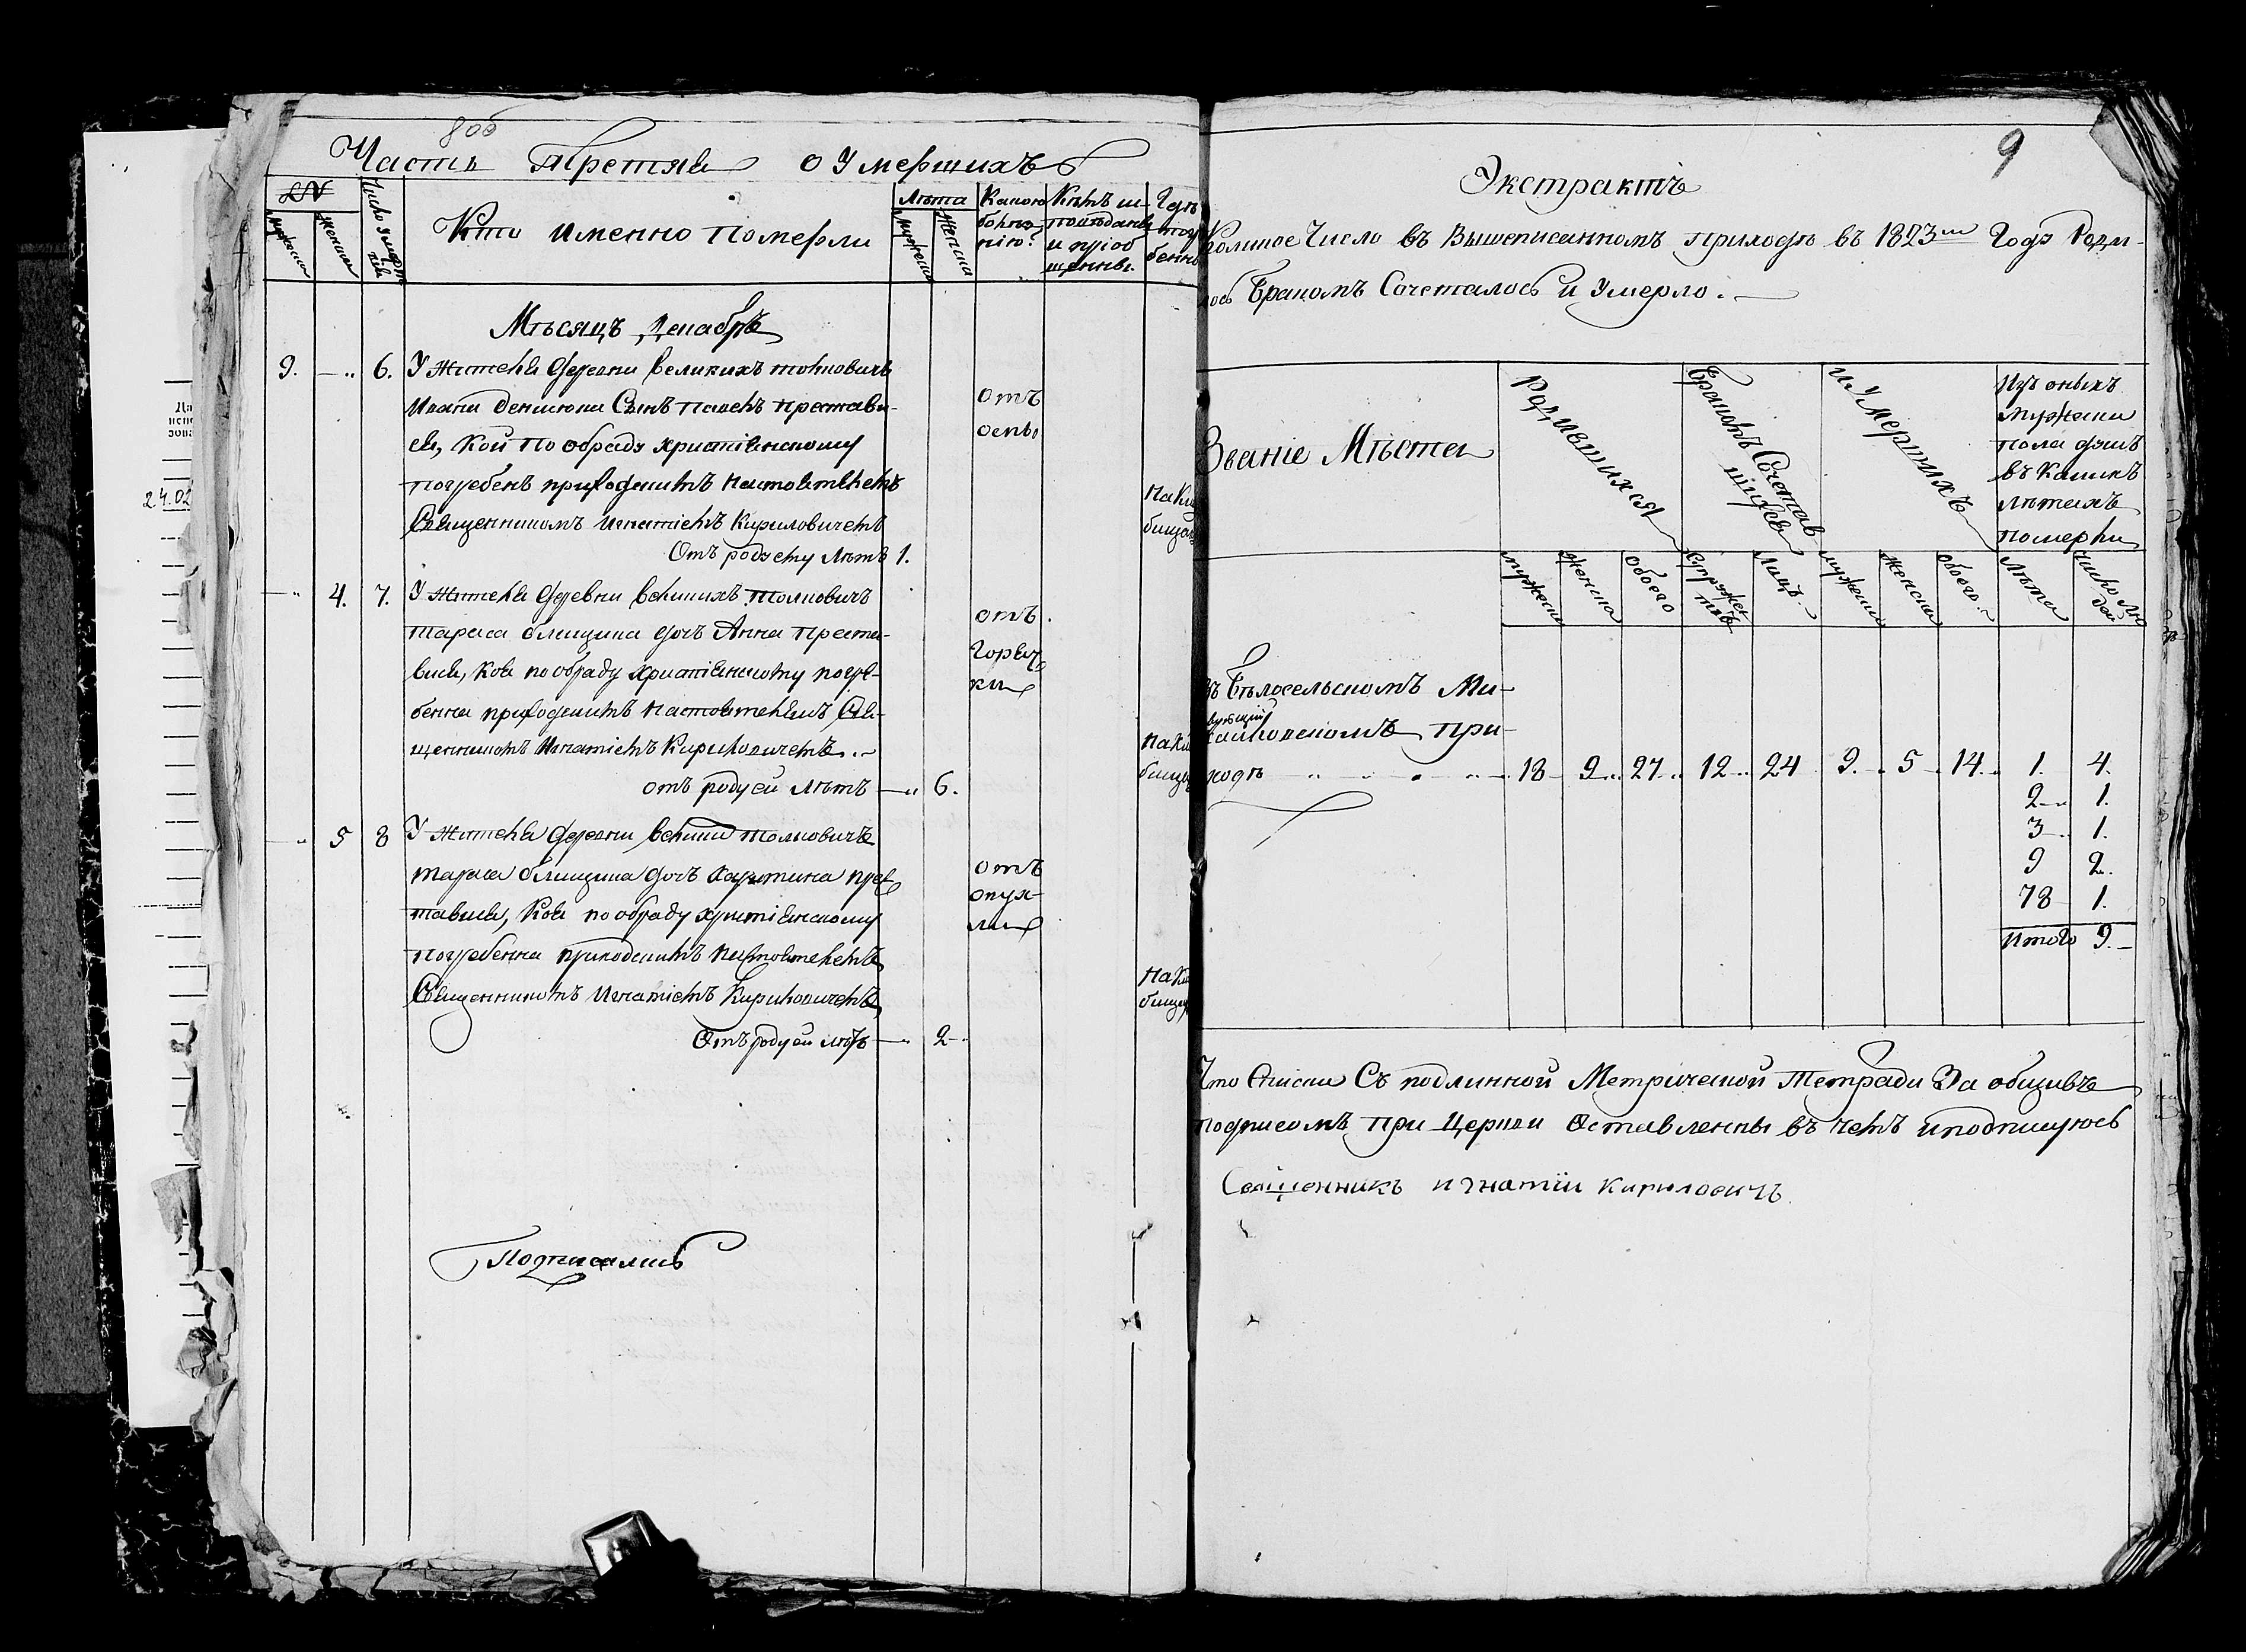 8 об
Часть Третяя о Умершихъ
№
Мужеска
Женска
Число умерт
Кто именно померли
Лѣта
Мужеска
Женска
Какою
болѣз
нію?
Кѣмъ и-
повѣдан
и пріоб
щенны.
Гдѣ
пог
бенны
Мѣсяцъ Декабрь
9. — 6. У жителя деревни великихъ толковичъ
Ивана сынъ Павелъ престави-
ся, кой по обряду христіянскому
погребенъ приходскимъ настоятелемъ
Священникомъ Игнатіемъ Кириловичемъ
Отъ роду ему лѣтъ 1.
отъ
оспы
на кла
бищѣ
— 4. 7. У жителя деревни великихъ Толковичъ
тараса дочъ Анна преста-
вися, коя по обряду христіянскому погре-
бенна приходскимъ настоятелемъ Свя-
щенникомъ Игнатіемъ Кириловичемъ
отъ роду ей лѣтъ — 6.
отъ
горяч
ки
на кла
бищѣ
— 5 8 У жителя деревни велики толковичъ
тараса дочъ Харитина прес
тавися, коя по обряду христіянскому
погребенна приходскимъ настоятелемъ
Священникомъ Игнатіемъ Кириловичемъ
Отъ роду ей лѣтъ — 2
отъ
опух-
ли
на кла
бищѣ
Подписалис
24.02
9
Экстрактъ
Коликое Число въ Вышеписанномъ приходѣ въ 1823м Годѣ Роди-
лось Бракомъ Сочеталось и Умерло.
Званіе Мѣста
Родившихся
Бракомъ Сочетав
шихся
и Умершихъ
Изъ оныхъ
мужеска
пола душъ
въ какихъ
лѣтахъ
померли
мужеска
женска
обоего
Супруже
ствъ
Лицъ
мужеска
женска
обоего
Лѣта
Число лю
дей
въ Бѣлосельскомъ Ми-
при-
ходѣ 18 9 27 12 24 9. 5 14. 1. 4.
2 1.
3 1.
9 2.
78 1.
Итого 9.
Что списки Съ подлинной Метрической Тетради За общивъ
подписомъ при Церкви Оставленны въ чемъ и подпишуюсь
Священникъ игнатіи кириловичъ